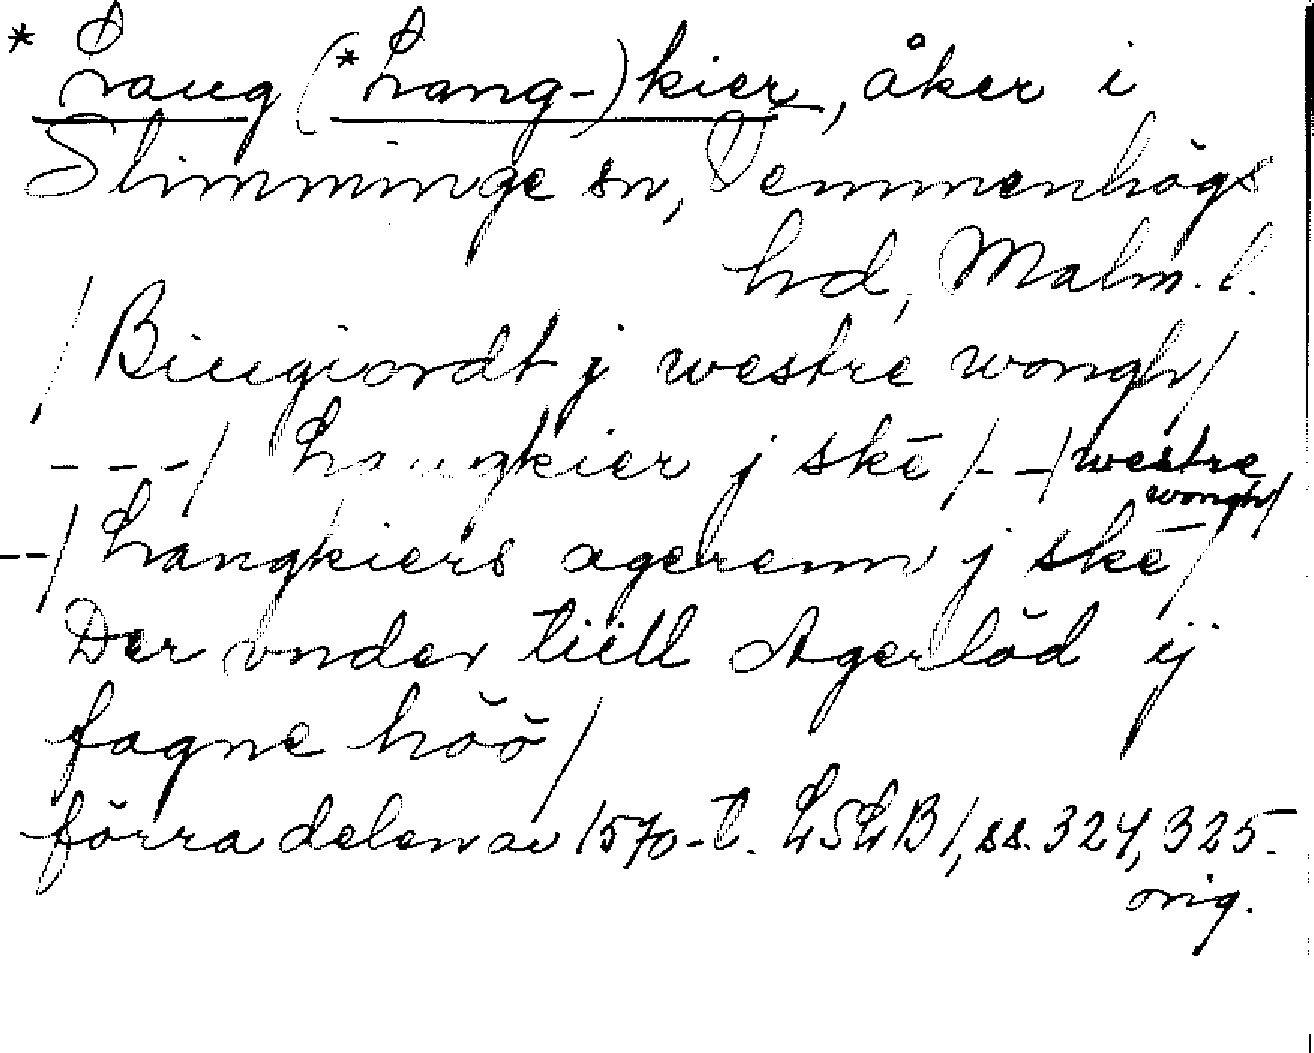 * Laug (*Lang-) kier, åker i
Slimminge sn, Vemmenhögs
hd, Malm. l.
/ Biugiordt j westre wongh /
--- / Laugkier j skē / -- / westre
wongh /
-- / Langkiers agerenn j skē /
Der vnder tiill Agerlöd ij
fagne höö /
förra delen av 1570-t. LSLB 1, ss. 324, 325.
orig.